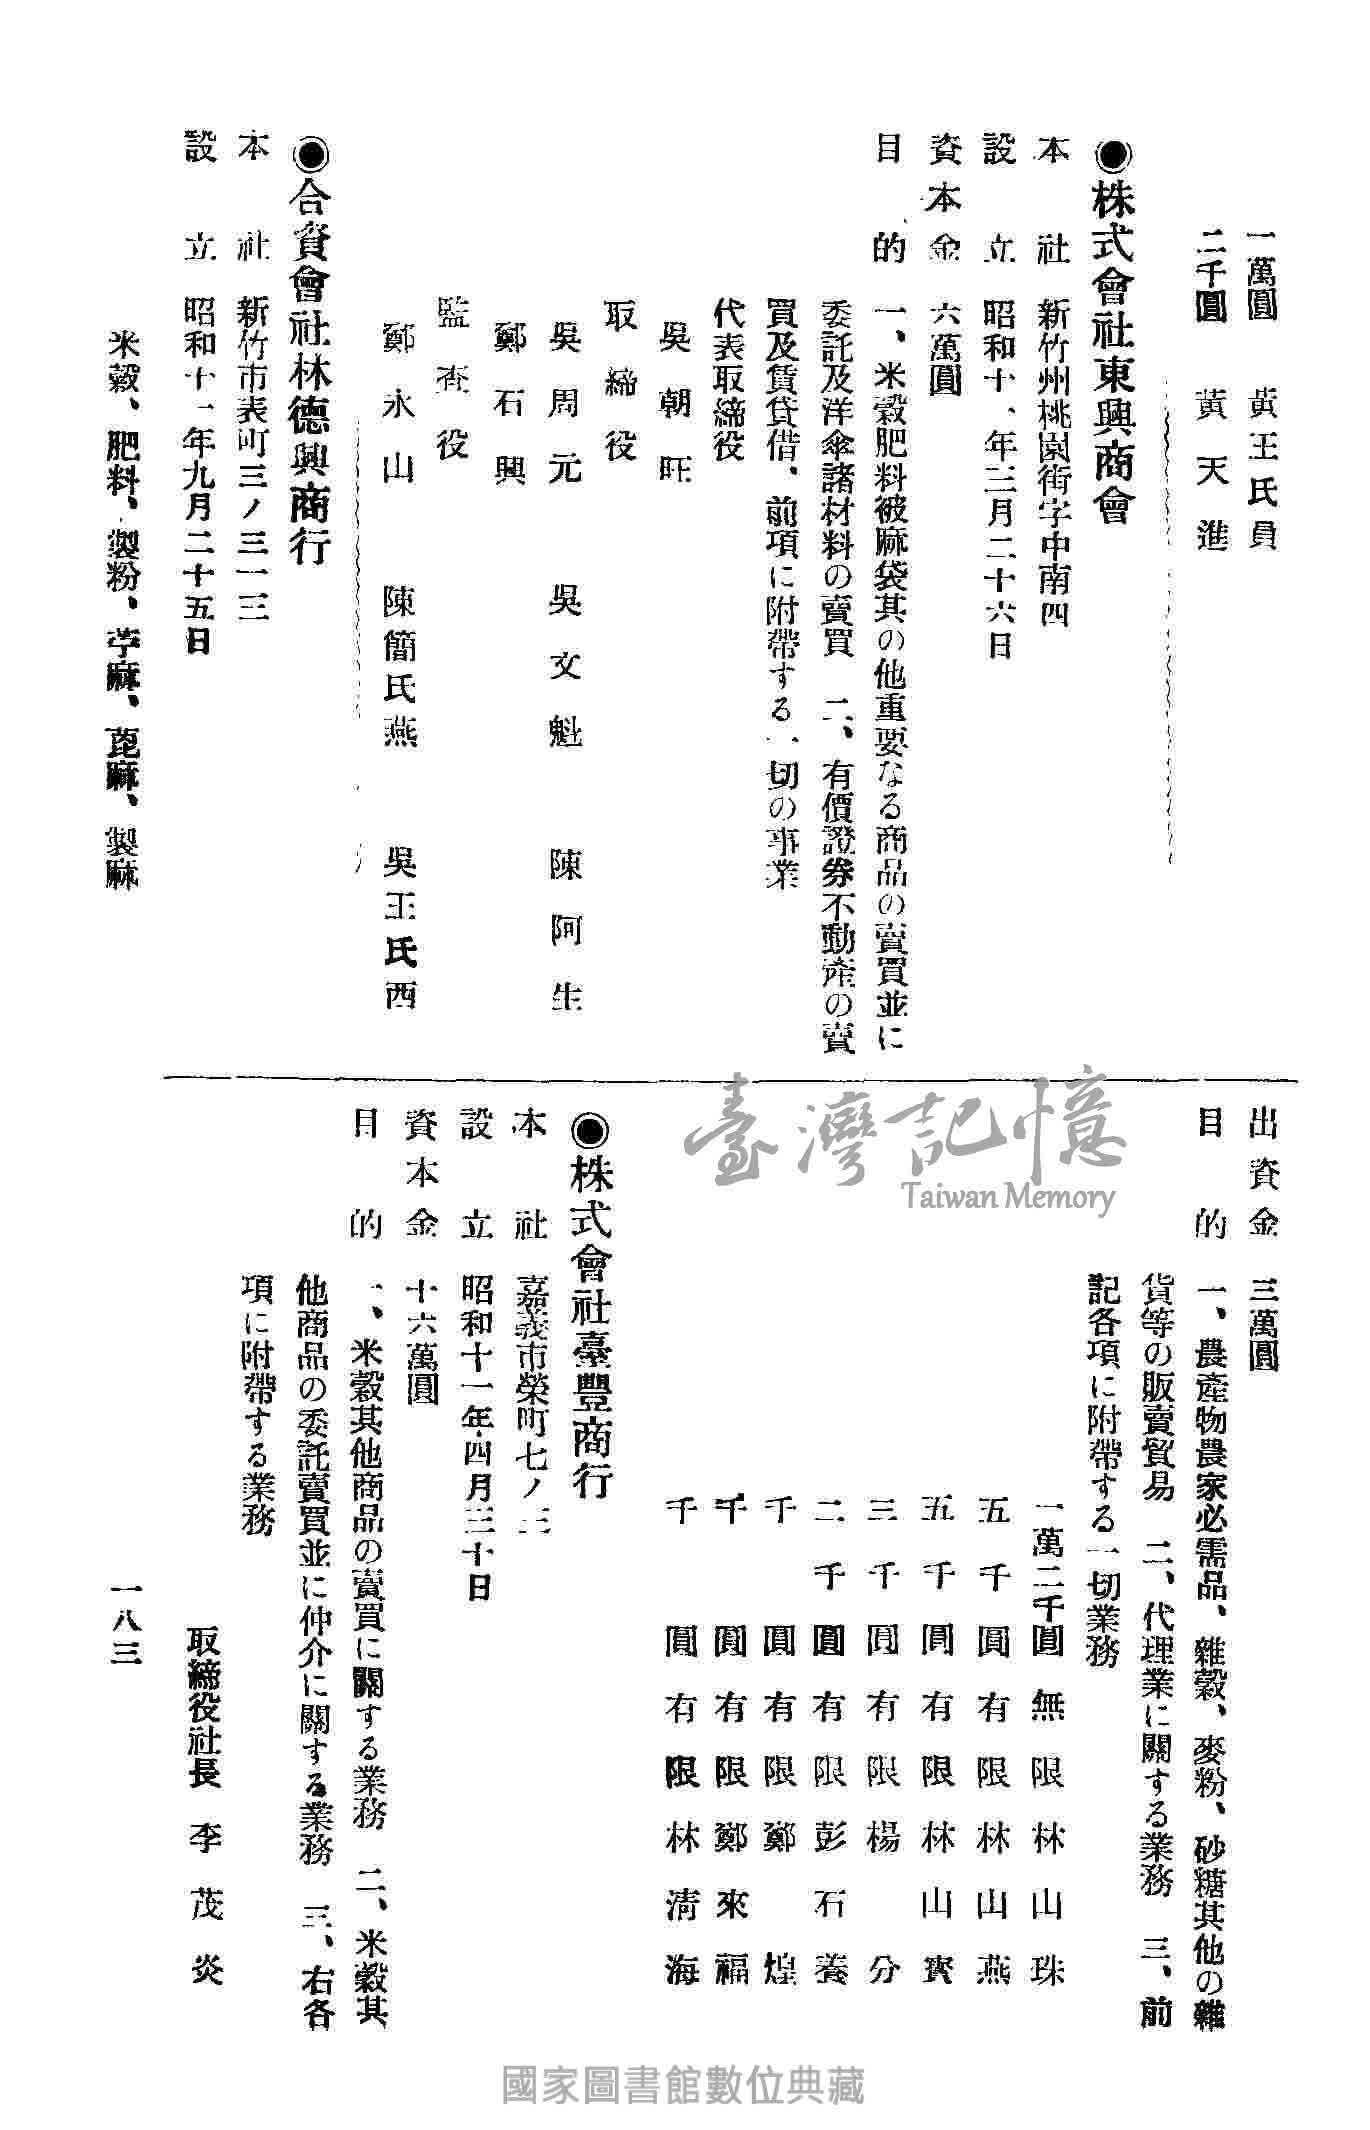 一萬圓　黃王氏員
二千圓　黃天進
◉株式會社東興商會
本社　新竹州桃園街字中南四
設立　昭和十一年三月二十六日
資本金　六萬圓
目的　一、米穀肥料被麻袋其の他重要なる商品の賣買並に
委託及洋傘諸材料の賣買　二、有價證券不動產の賣
買及賃貸借、前項に附帶する一切の事業
代表取締役
吳朝旺
取締役
吳周元　吳文魁　陳阿生
鄭石興
監査役
鄭永山　陳簡氏燕　吳王氏西
◉合資會社林德興商行
本社　新竹市表町三ノ三一三
設立　昭和十一年九月二十五日
米穀、肥料、製粉、苧麻、萞麻、製麻
出資金　三萬圓
目的　一、農產物農家必需品、雜穀、麥粉、砂糖其他の雜
貨等の販賣貿易　二、代理業に關する業務　三、前
記各項に附帶する一切業務
一萬二千圓　無限　林山珠
五千圓　有限　林山燕
五千圓　有限　林山寶
三千圓　有限　楊分
二千圓　有限　彭石養
千圓　有限　鄭煌
千圓　有限　鄭來福
千圓　有限　林清海
◉株式會社臺豐商行
本社　嘉義市榮町七ノ三
設立　昭和十一年四月三十日
資本金　十六萬圓
目的　一、米穀其他商品の賣買に關する業務　二、米穀其
他商品の委託賣買並に仲介に關する業務　三、右各
項に附帶する業務
取締役社長　李茂炎
一八三
臺灣記憶
Taiwan Memory
國家圖書館數位典藏